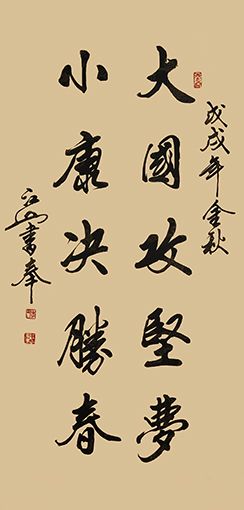 戊戌年金秋
大國攻堅夢
小康决勝春
書奉